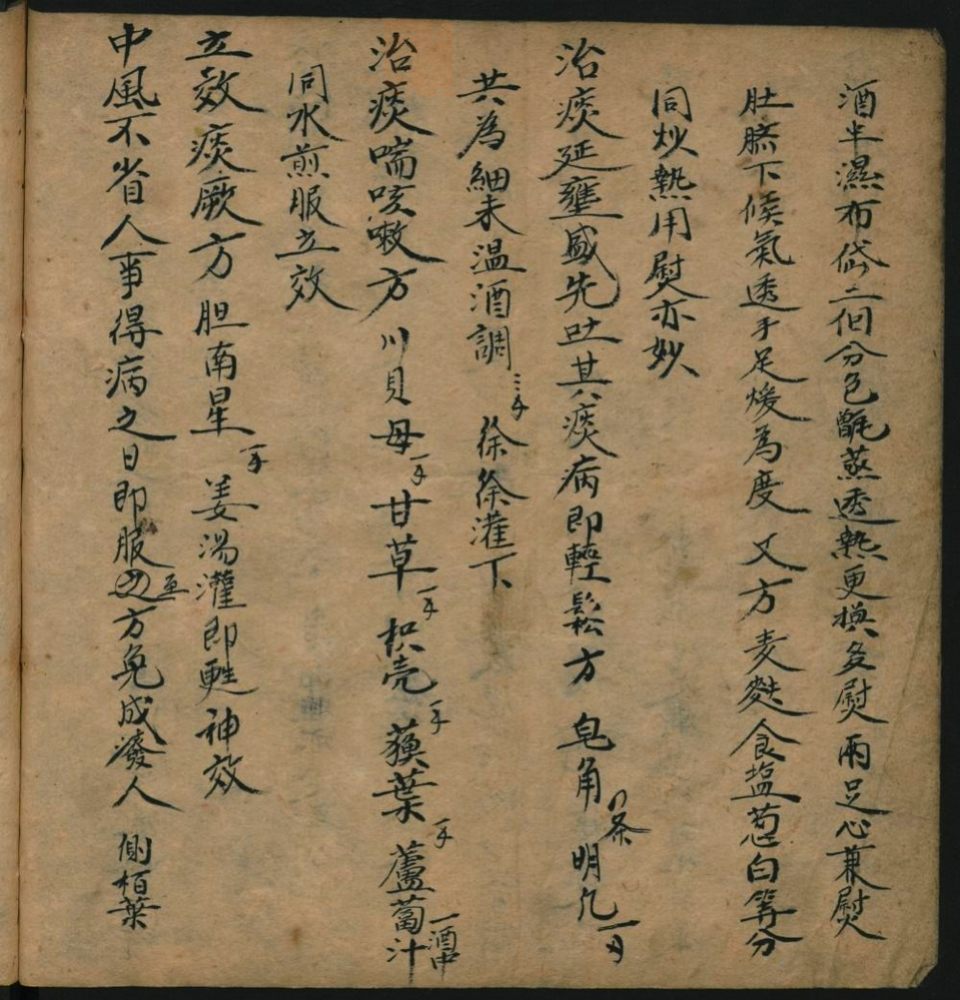 酒半濕布袋二佀分包甑蒸透熱更換多熨兩足心兼熨
肚臍下候氣透手足煖為度 又方麦麩食塩葱白等分
同炒熱用熨亦妙
治痰延壅盛先吐其痰病即輕鬆方 皂角 条 明凡
共為細末温酒調 徐徐灌下
治痰喘咳嗽方 川貝母 甘草 枳壳 蘋葉 蘆蔔汁一酒中
同水煎服立效
立效痰厥方 胆南星 姜湯灌即甦神效
中風不省人事得病之日即服 方免成癈人 側栢葉